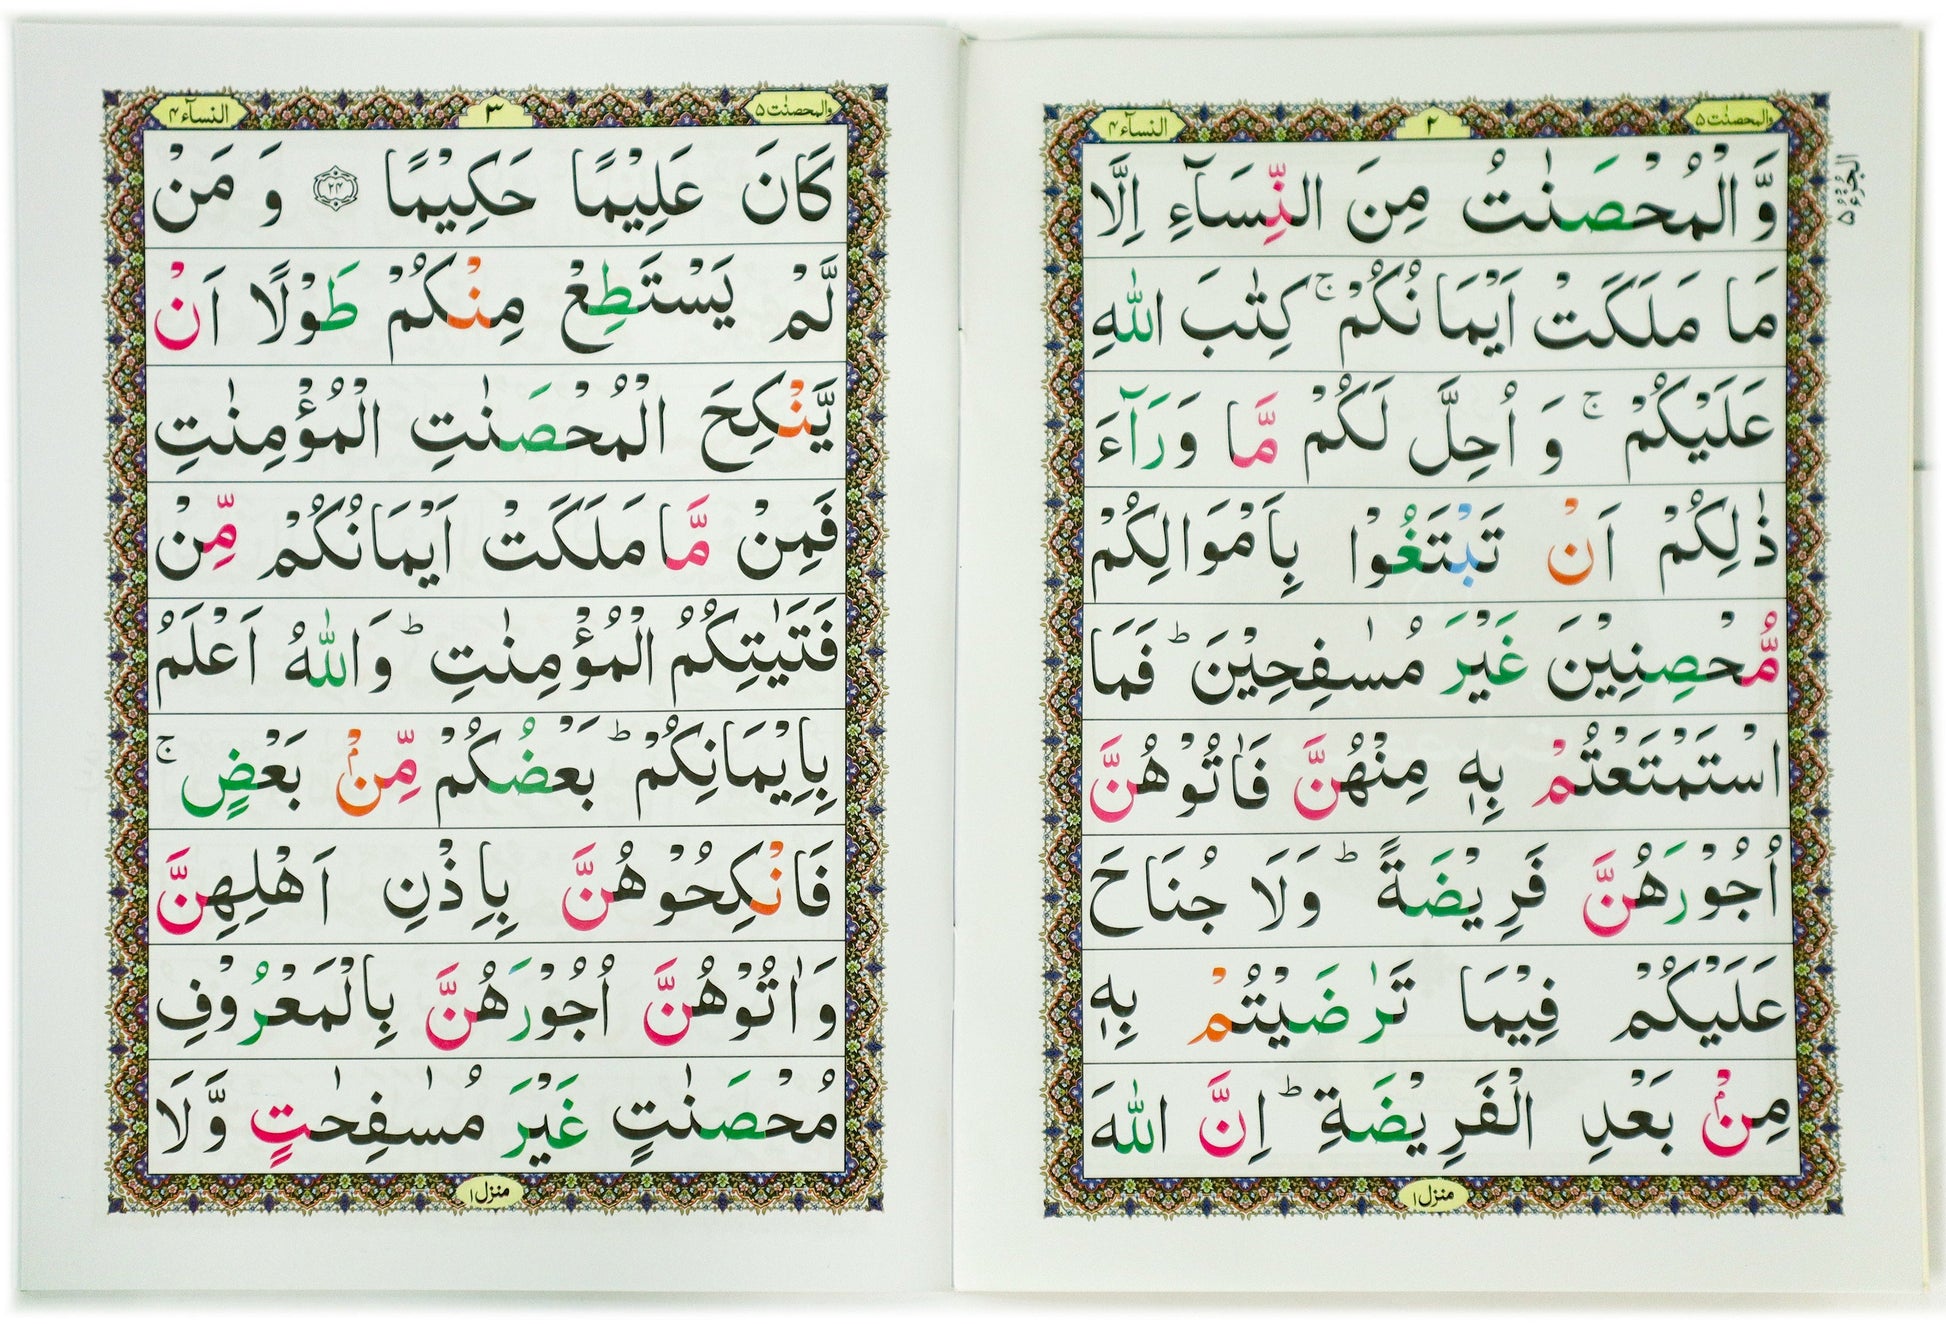 والمحصنت ۵
۲
النسآء ۴
الجزء ۵
وَّالْمُحْصَنٰتُ مِنَ النِّسَآءِ اِلَّا
مَا مَلَكَتْ اَيْمَانُكُمْ ۚ كِتٰبَ اللّٰهِ
عَلَيْكُمْ ۚ وَ اُحِلَّ لَكُمْ مَّا وَرَآءَ
ذٰلِكُمْ اَنْ تَبْتَغُوْا بِاَمْوَالِكُمْ
مُّحْصِنِيْنَ غَيْرَ مُسٰفِحِيْنَ ؕ فَمَا
اسْتَمْتَعْتُمْ بِهٖ مِنْهُنَّ فَاٰتُوْهُنَّ
اُجُوْرَهُنَّ فَرِيْضَةً ؕ وَلَا جُنَاحَ
عَلَيْكُمْ فِيْمَا تَرٰضَيْتُمْ بِهٖ
مِنْۢ بَعْدِ الْفَرِيْضَةِ ؕ اِنَّ اللّٰهَ
منزل ۱
والمحصنت ۵
۳
النسآء ۴
كَانَ عَلِيْمًا حَكِيْمًا ۲۴ وَ مَنْ
لَّمْ يَسْتَطِعْ مِنْكُمْ طَوْلًا اَنْ
يَّنْكِحَ الْمُحْصَنٰتِ الْمُؤْمِنٰتِ
فَمِنْ مَّا مَلَكَتْ اَيْمَانُكُمْ مِّنْ
فَتَيٰتِكُمُ الْمُؤْمِنٰتِ ؕ وَاللّٰهُ اَعْلَمُ
بِاِيْمَانِكُمْ ؕ بَعْضُكُمْ مِّنْۢ بَعْضٍ ۚ
فَانْكِحُوْهُنَّ بِاِذْنِ اَهْلِهِنَّ
وَاٰتُوْهُنَّ اُجُوْرَهُنَّ بِالْمَعْرُوْفِ
مُحْصَنٰتٍ غَيْرَ مُسٰفِحٰتٍ وَّلَا
منزل ۱